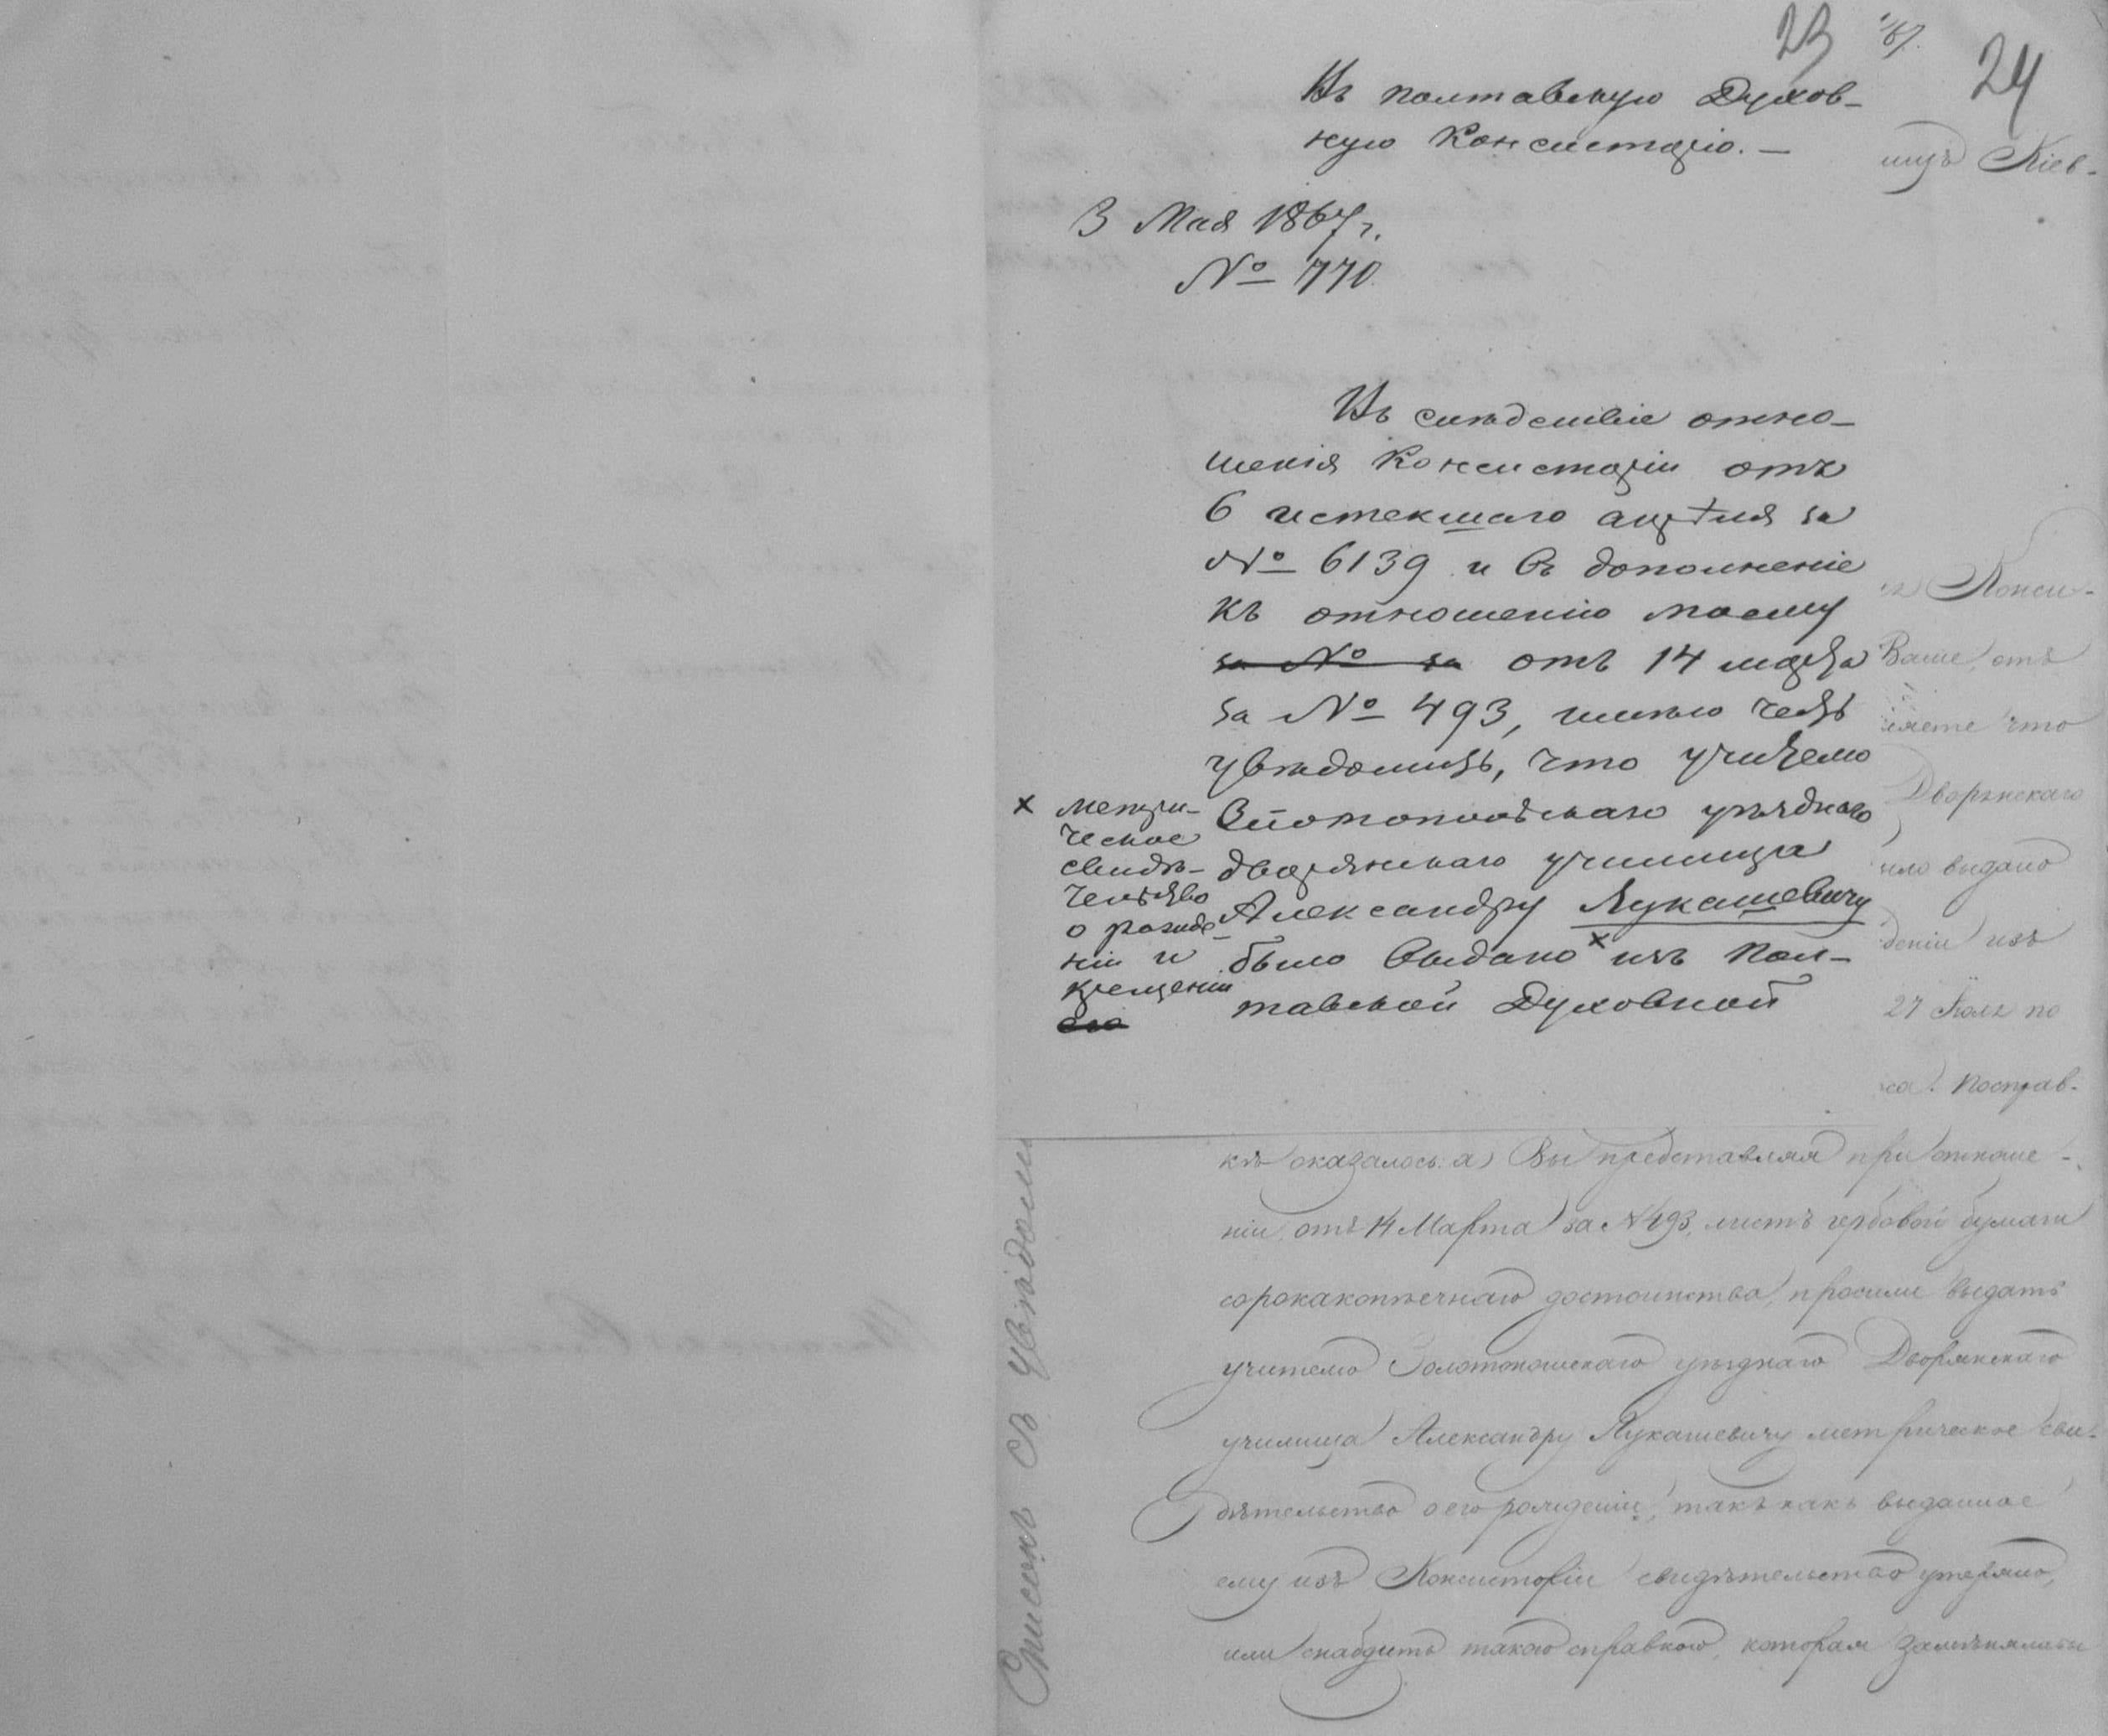 23
24
Въ полтавскую Духов-
ную Консисторію. —
3 Мая 1867 г.
№ 770
Въ слѣдствіе отно-
шенія Консисторіи отъ
6 истекшаго апрѣля за
№ 6139 и въ дополненіе
къ отношенію моему
за № за отъ 14 марта
за № 493, имѣю честь
увѣдомить, что учителю
Золотоношскаго уѣзднаго
дворянскаго училища
Александру Лукашевичу
было выдано x изъ Пол-
тавской Духовной
x метри-
ческое
свидѣ-
тельство
о рожде-
ніи и
крещеніи
его
Кіев-
Конси-
Ваше, отъ
что
Дворянскаго
выдано
деніи изъ
27 по
Полтав-
кѣ оказалось: а) Вы представляя при отноше-
ніи, отъ 14 Марта за № 493, листъ гербовой бумаги
сорокакопѣечнаго достоинства, просили выдать
учителю Золотоношскаго уѣзднаго Дворянскаго
училища Александру Лукашевичу метрическое сви-
дѣтельство о его рожденіи, такъ какъ выданное
ему изъ Консисторіи свидѣтельство утеряно,
или снабдить такою справкою, которая замѣняла бы
Списокъ съ увѣдомл